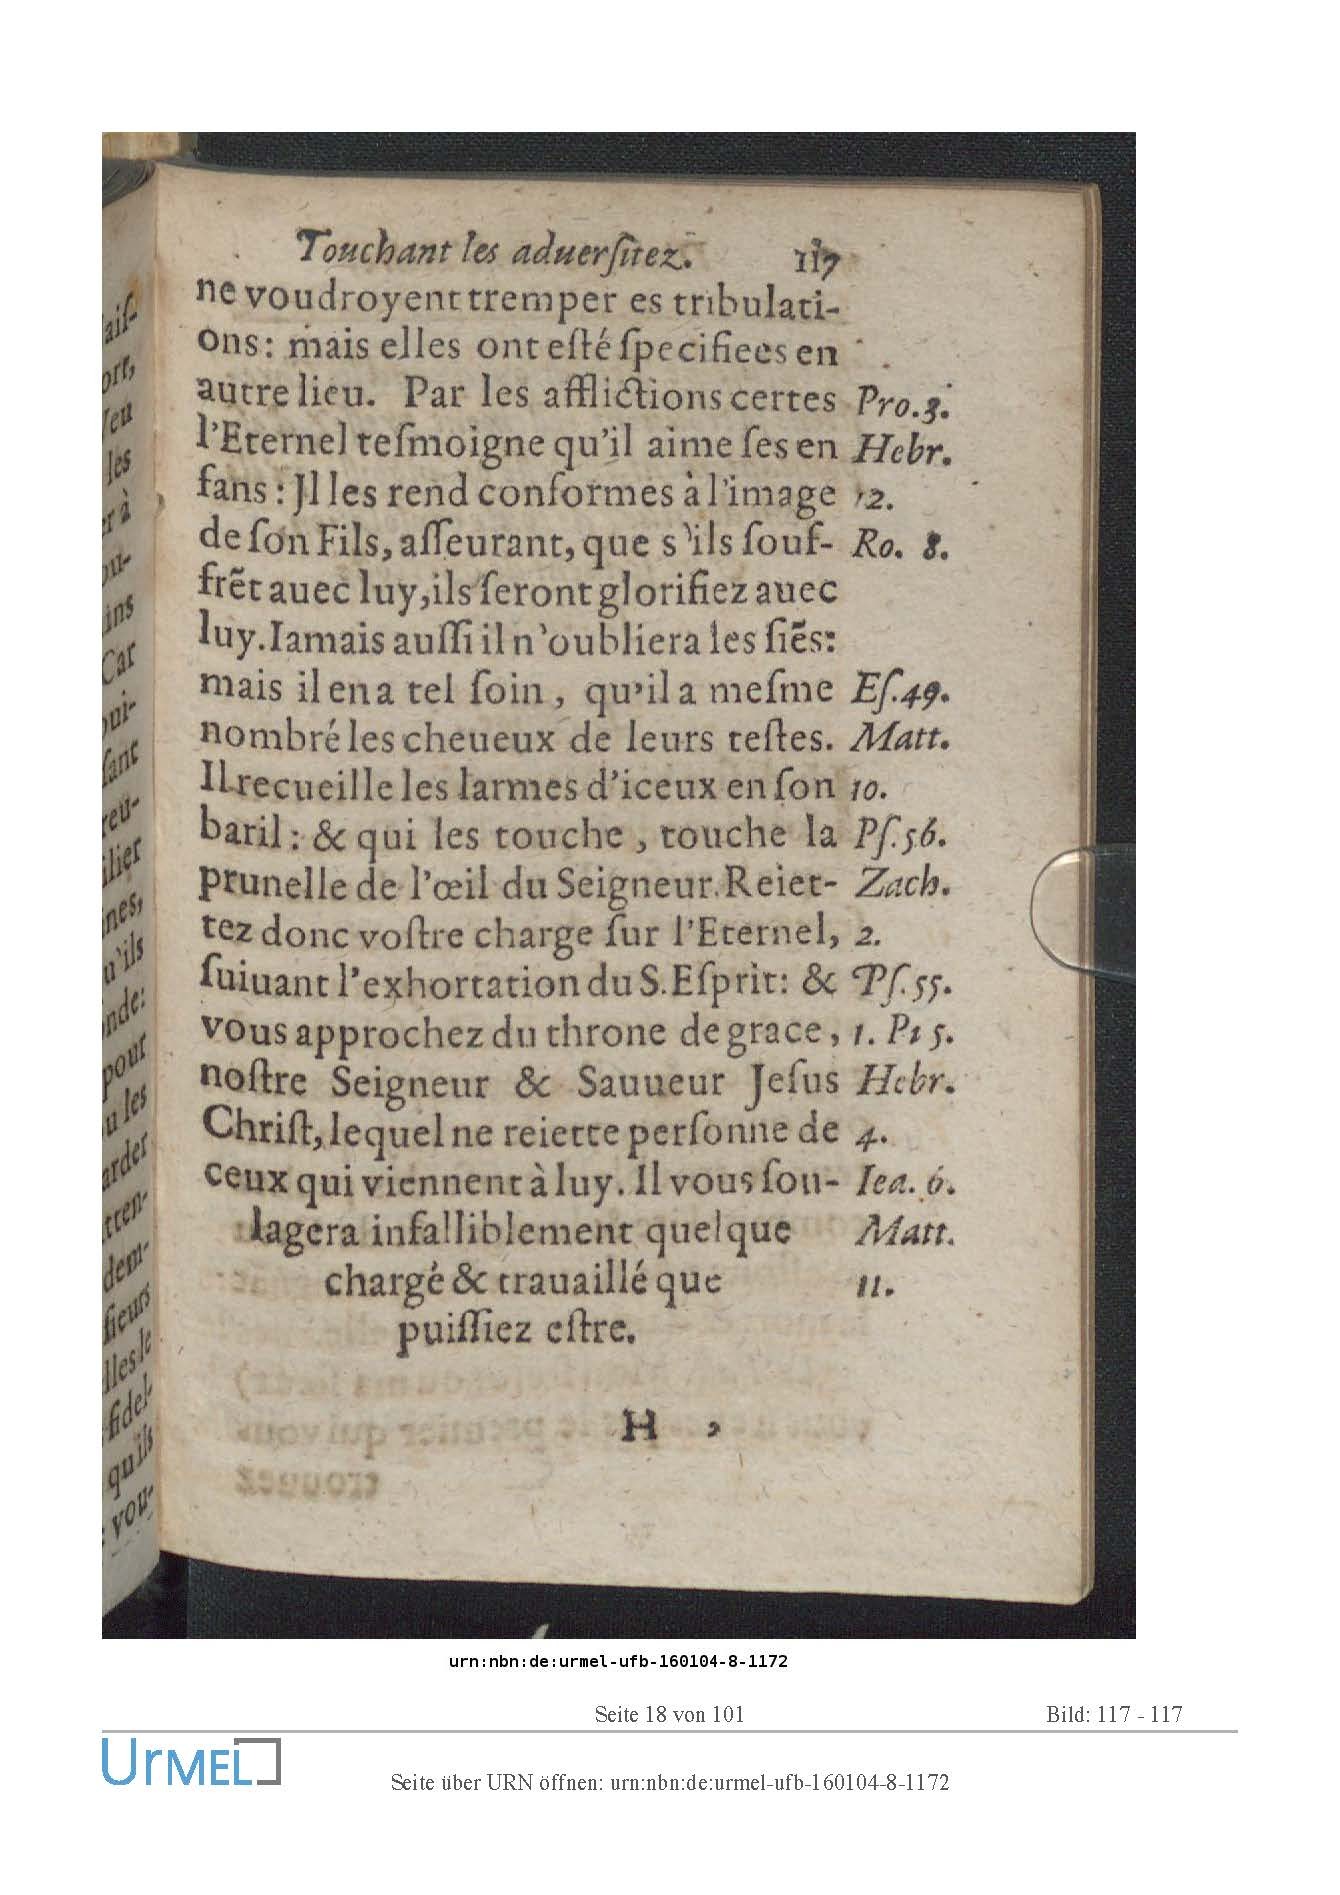 Touchant les aduerſitez. 117
ne voudroyent tremper es tribulati-
ons: mais elles ont eſté ſpecifiees en
autre lieu. Par les afflictions certes Pro.3.
l'Eternel teſmoigne qu'il aime ſes en Hebr.
fans: Jl les rend conformes à l'image 12.
de ſon Fils, aſſeurant, que s'ils ſouf- Ro. 8.
frẽt auec luy, ils ſeront glorifiez auec
luy. Iamais auſſi il n'oubliera les ſiẽs:
mais il en a tel ſoin, qu'il a meſme Eſ.49.
nombré les cheueux de leurs teſtes. Matt.
Il recueille les larmes d'iceux en ſon 10.
baril: & qui les touche, touche la Pſ.56.
prunelle de l'œil du Seigneur. Reiet- Zach.
tez donc voſtre charge ſur l'Eternel, 2.
ſuiuant l'exhortation du S. Eſprit: & Pſ.55.
vous approchez du throne de grace, 1. Pi 5.
noſtre Seigneur & Sauueur Jeſus Hebr.
Chriſt, lequel ne reiette perſonne de 4.
ceux qui viennent à luy. Il vous ſou- Iea. 6.
lagera infalliblement quelque Matt.
chargé & trauaillé que 11.
puiſſiez eſtre.
H
urn:nbn:de:urmel-ufb-160104-8-1172
Seite 18 von 101 Bild: 117 - 117
UrMEL
Seite über URN öffnen: urn:nbn:de:urmel-ufb-160104-8-1172